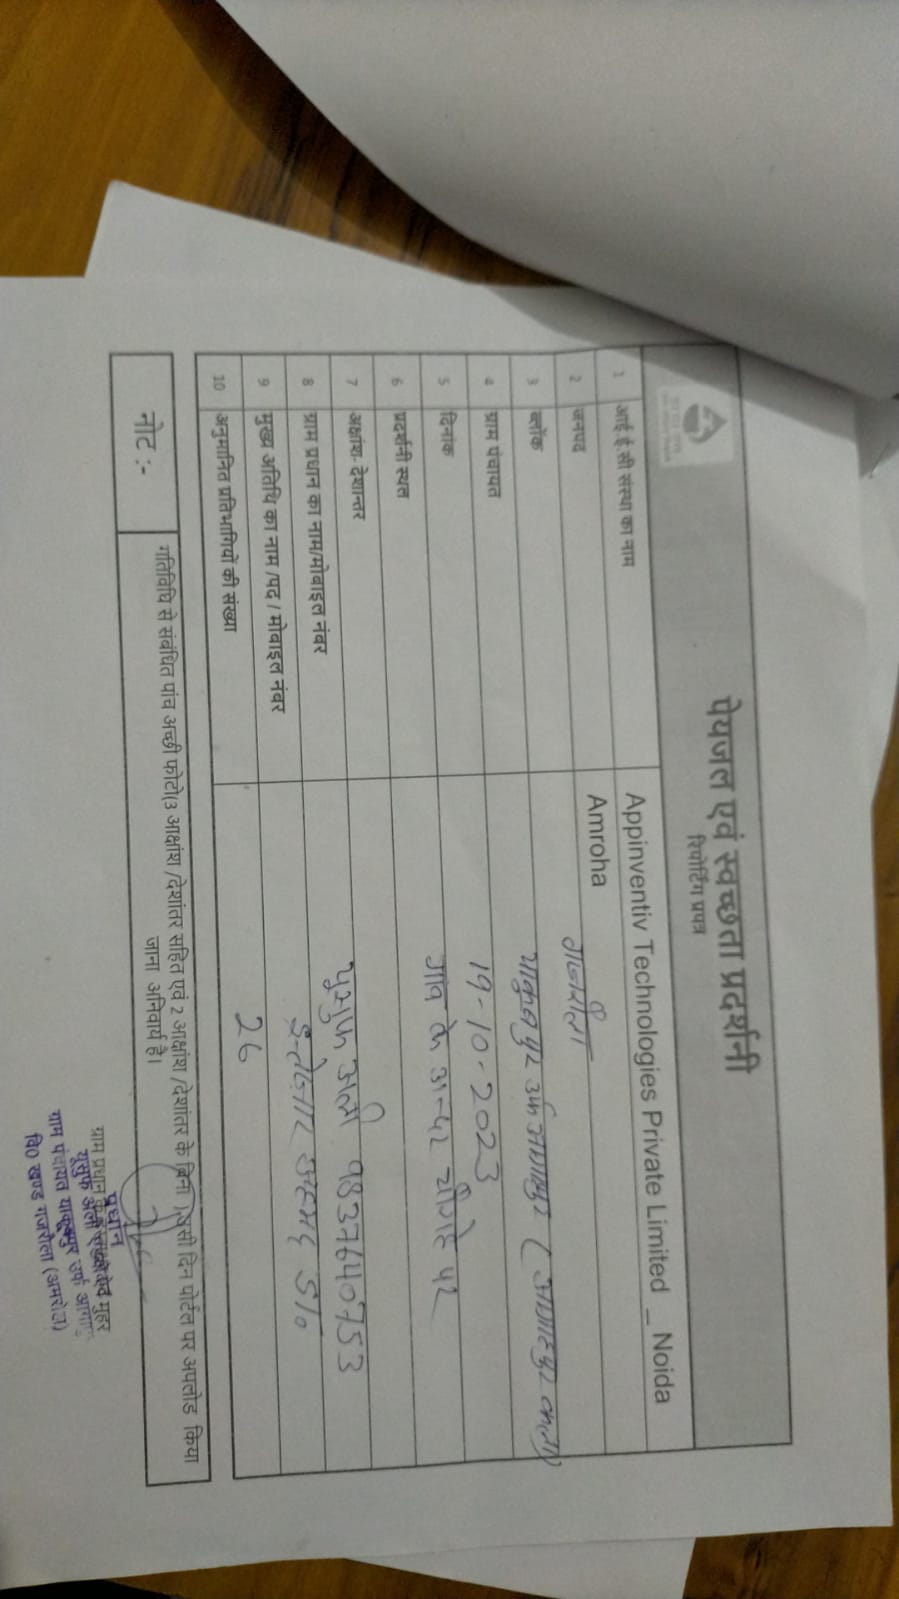 पेयजल एवं स्वच्छता प्रदर्शनी
रिपोर्टिंग प्रपत्र
1 आई.ई.सी संस्था का नाम Appinventiv Technologies Private Limited _ Noida
2 जनपद Amroha
3 ब्लॉक गजरौला
4 ग्राम पंचायत याकुबपुर उर्फ
5 दिनांक 19-10-2023
6 प्रदर्शनी स्थल गांव के अन्दर चौराहे पर
7 अक्षांश- देशान्तर
8 ग्राम प्रधान का नाम/मोबाइल नंबर युसुफ अली
9 मुख्य अतिथि का नाम /पद / मोबाइल नंबर अहमद S/o
10 अनुमानित प्रतिभागियों की संख्या 26
नोट :- गतिविधि से संबंधित पांच अच्छी फोटो(3 आक्षांश /देशांतर सहित एवं 2 आक्षांश /देशांतर के बिना ) उसी दिन पोर्टल पर अपलोड किया
जाना अनिवार्य है।
प्रधान
ग्राम प्रधान के मुहर
युसुफ अली
ग्राम पंचायत उर्फ
वि० खण्ड गजरौला (अमरोहा)